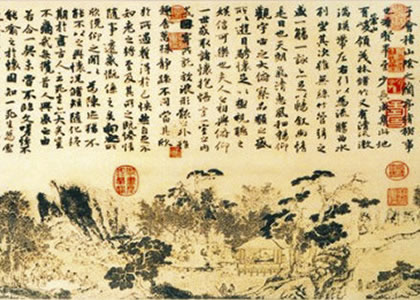 會稽山陰之蘭亭脩稧事
也群賢畢至少長咸集此地
有崇山峻領茂林脩竹又有清流激
湍暎帶左右引以為流觴曲水
列坐其次雖無絲竹管弦之
盛一觴一詠亦足以暢敘幽情
是日也天朗氣清惠風和暢仰
觀宇宙之大俯察品類之盛
所以遊目騁懷足以極視聽之
娛信可樂也夫人之相與俯仰
一世或取諸懷抱悟言一室之內
或因寄所託放浪形骸之外雖
趣舍萬殊靜躁不同當其欣
於所遇暫得於己怏然自足不
知老之將至及其所之既倦情
隨事遷感慨係之矣向之所
欣俛仰之閒以為陳迹猶不
能不以之興懷況脩短隨化終
期於盡古人云死生亦大矣豈
不痛哉每攬昔人興感之由
若合一契未嘗不臨文嗟悼不
能喻之於懷固知一死生為虛